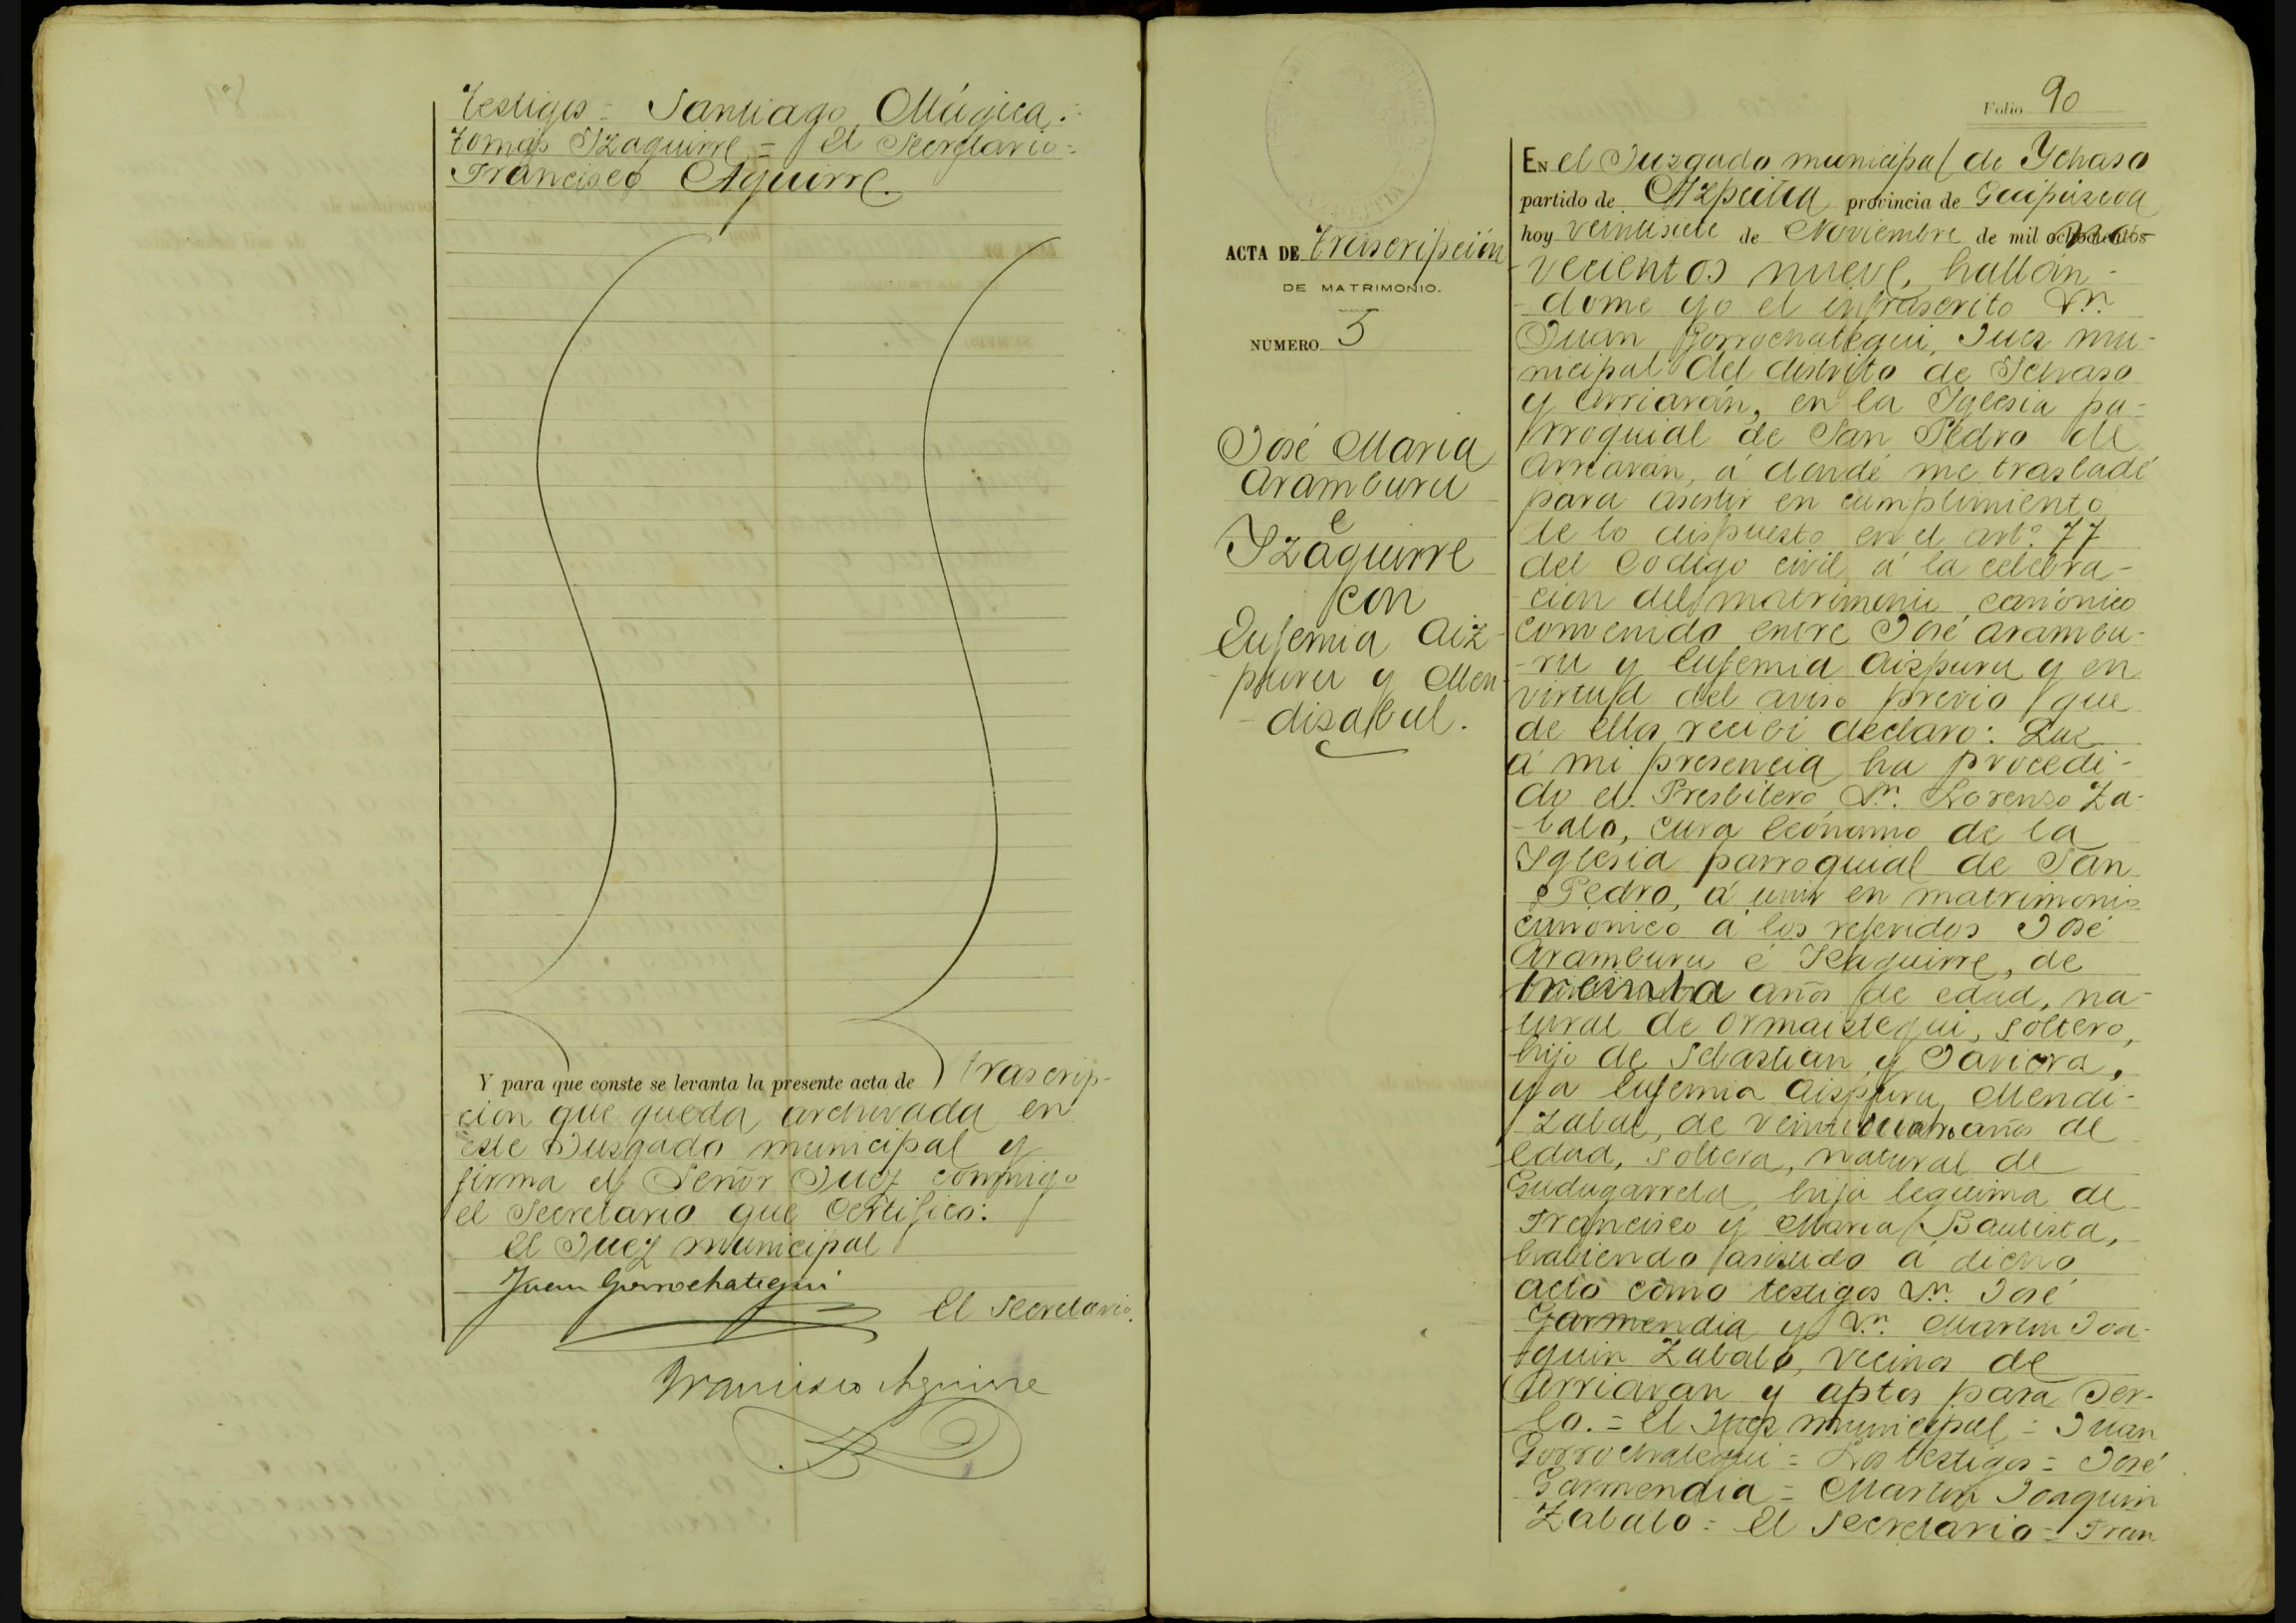 testigos = Santiago Múgica. =
Tomás Yzaguirre = El Secretario =
Francisco Aguirre.
Y para que conste se levanta la presente acta de trascrip-
ción que queda archivada en
este Jusgado municipal y
firma el Señor Juez conmigo
el Secretario que Certifico:
El Juez municipal
Juan Gorrochategui
El Secretario.
Francisco Aguirre
Folio 90
ACTA DE Trascripción
DE MATRIMONIO.
NÚMERO 5
José María
Aramburu
e
Yzaguirre
con
Eufemia Aiz-
-puru y Men
-disabal.
EN el Juzgado municipal de Ychaso
partido de Azpeitia provincia de Guipúzcoa
hoy veintisiete de Noviembre de mil ochocientos no-
vecientos nueve, hallán-
-dome yo el infrascrito Dn.
Juan Gorrochategui, Juez mu-
nicipal del distrito de Ichaso
y Arriarán, en la Iglesia pa-
rroquial de San Pedro de
Arriarán, á donde me trasladé
para asistir en cumplimiento
de lo dispuesto en el artº. 77
del Codigo civil á la celebra-
cion del matrimonio canónico
convenido entre José Arambu-
-ru y Eufemia Aizpuru y en
virtud del aviso previo que
de ellos recibí declaro: Que
á mi presencia ha procedi-
do el Presbitero Dn. Lorenzo Za-
-balo, cura Ecónomo de la
Iglesia parroquial de San
Pedro, á unir en matrimonio
canonico á los referidos José
Aramburu é Izaguirre, de
treinta años de edad, na-
tural de Ormaiztegui, soltero,
hijo de Sebastian y Javiera,
y a Eufemia Aispuru Mendi-
zabal, de veinticuatro años de
edad, soltera, natural de
Gudugarreta, hija legitima de
Francisco y Maria Bautista,
habiendo asistido á dicho
acto como testigos Dn. José
Garmendia y Dn. Martin Joa-
quin Zabalo, vecinos de
Arriaran y aptos para ser-
lo. = El Juez municipal = Juan
Gorrochategui = Los testigos = José
Garmendia = Martin Joaquin
Zabalo = El Secretario = Fran